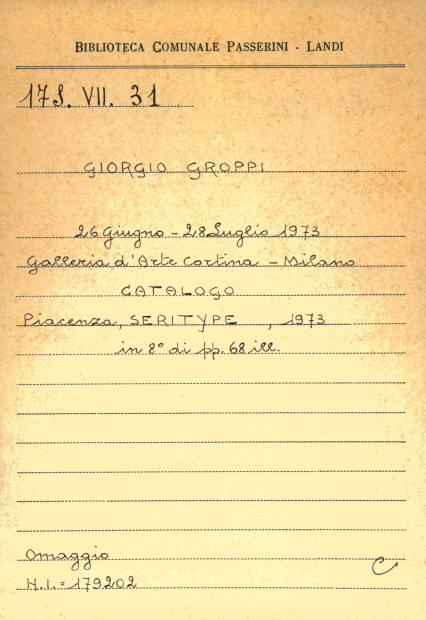 BIBLIOTECA COMUNALE PASSERINI - LANDI
17S. VII. 31
GIORGIO GROPPI
26 Giugno - 28 Luglio 1973
Galleria d'Arte Cortina - Milano
CATALOGO
Piacenza, SERITYPE , 1973
in 8° di pp. 68 ill.
Omaggio
C
N.I. = 179202